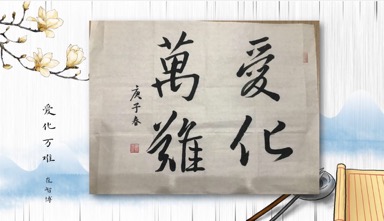 愛化
萬難
庚子春
爱化万难